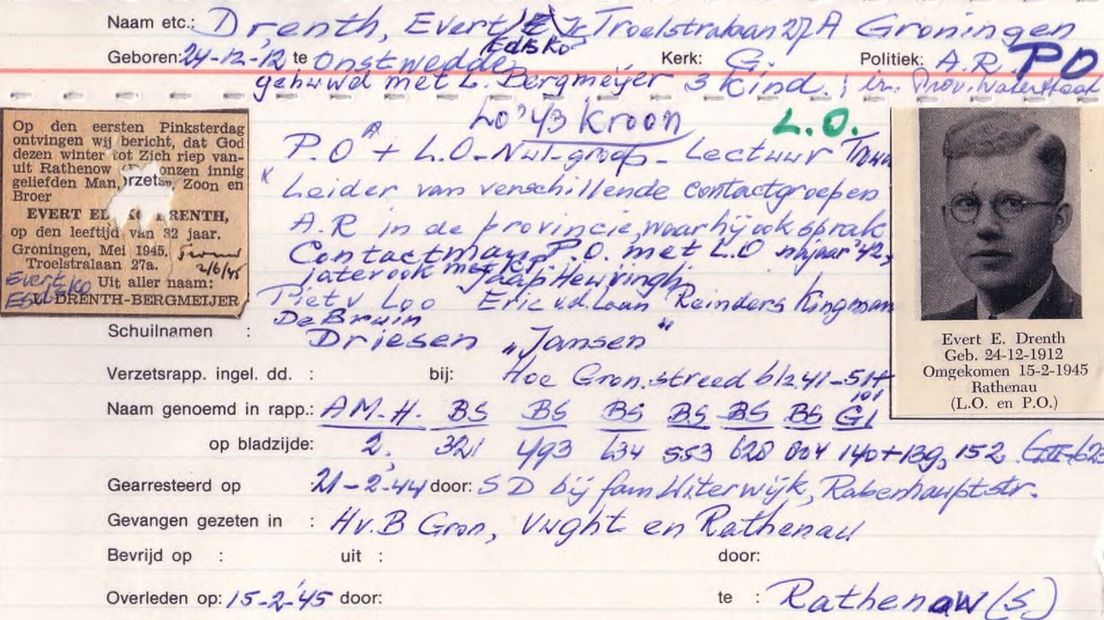 Naam etc.: Drenth, Evert Edisko Jz Troelstralaan 27A Groningen
Geboren: 24-12-'12 te Onstwedde Kerk: G. Politiek: A.R. PO
gehuwd met L. Bergmeijer 3 Kind.; in. Prov. Waterstaat
LO '43 Kroon L.O.
P.O + L.O-Nwl-groep - Lectuur Trouw
Leider van verschillende contactgroepen
A.R in de provincie, waar hij ook sprak
Contactman P.O. met L.O najaar '42,
later ook met KP Jaap Hewringh
Piet v Loo Eric v.d. Laan Reinders Kingman
De Bruin
Schuilnamen : Driesen "Jansen"
Verzetsrapp. ingel. dd. : bij: Hoe Gron. streed blz 41-51+
101
Naam genoemd in rapp.: AM.H. BS BS BS BS BS BS G1
op bladzijde: 2. 321 493 634 553 628 804 140+139, 152
Gearresteerd op : 21-2-'44 door: SD bij fam Witerwijk, Rabenhauptstr.
Gevangen gezeten in : Hv.B Gron, Vught en Rathenau
Bevrijd op : uit : door:
Overleden op: 15-2-'45 door: te : Rathenaw (S)
Op den eersten Pinksterdag
ontvingen wij bericht, dat God
dezen winter tot Zich riep van-
uit Rathenow onzen innig
geliefden Man, Zoon en
Broer
EVERT DRENTH,
op den leeftijd van 32 jaar.
Groningen, Mei 1945. Trouw
Troelstralaan 27a. 2/6/45
Evert Uit aller naam:
Edisko DRENTH-BERGMEIJER
Evert E. Drenth
Geb. 24-12-1912
Omgekomen 15-2-1945
Rathenau
(L.O. en P.O.)